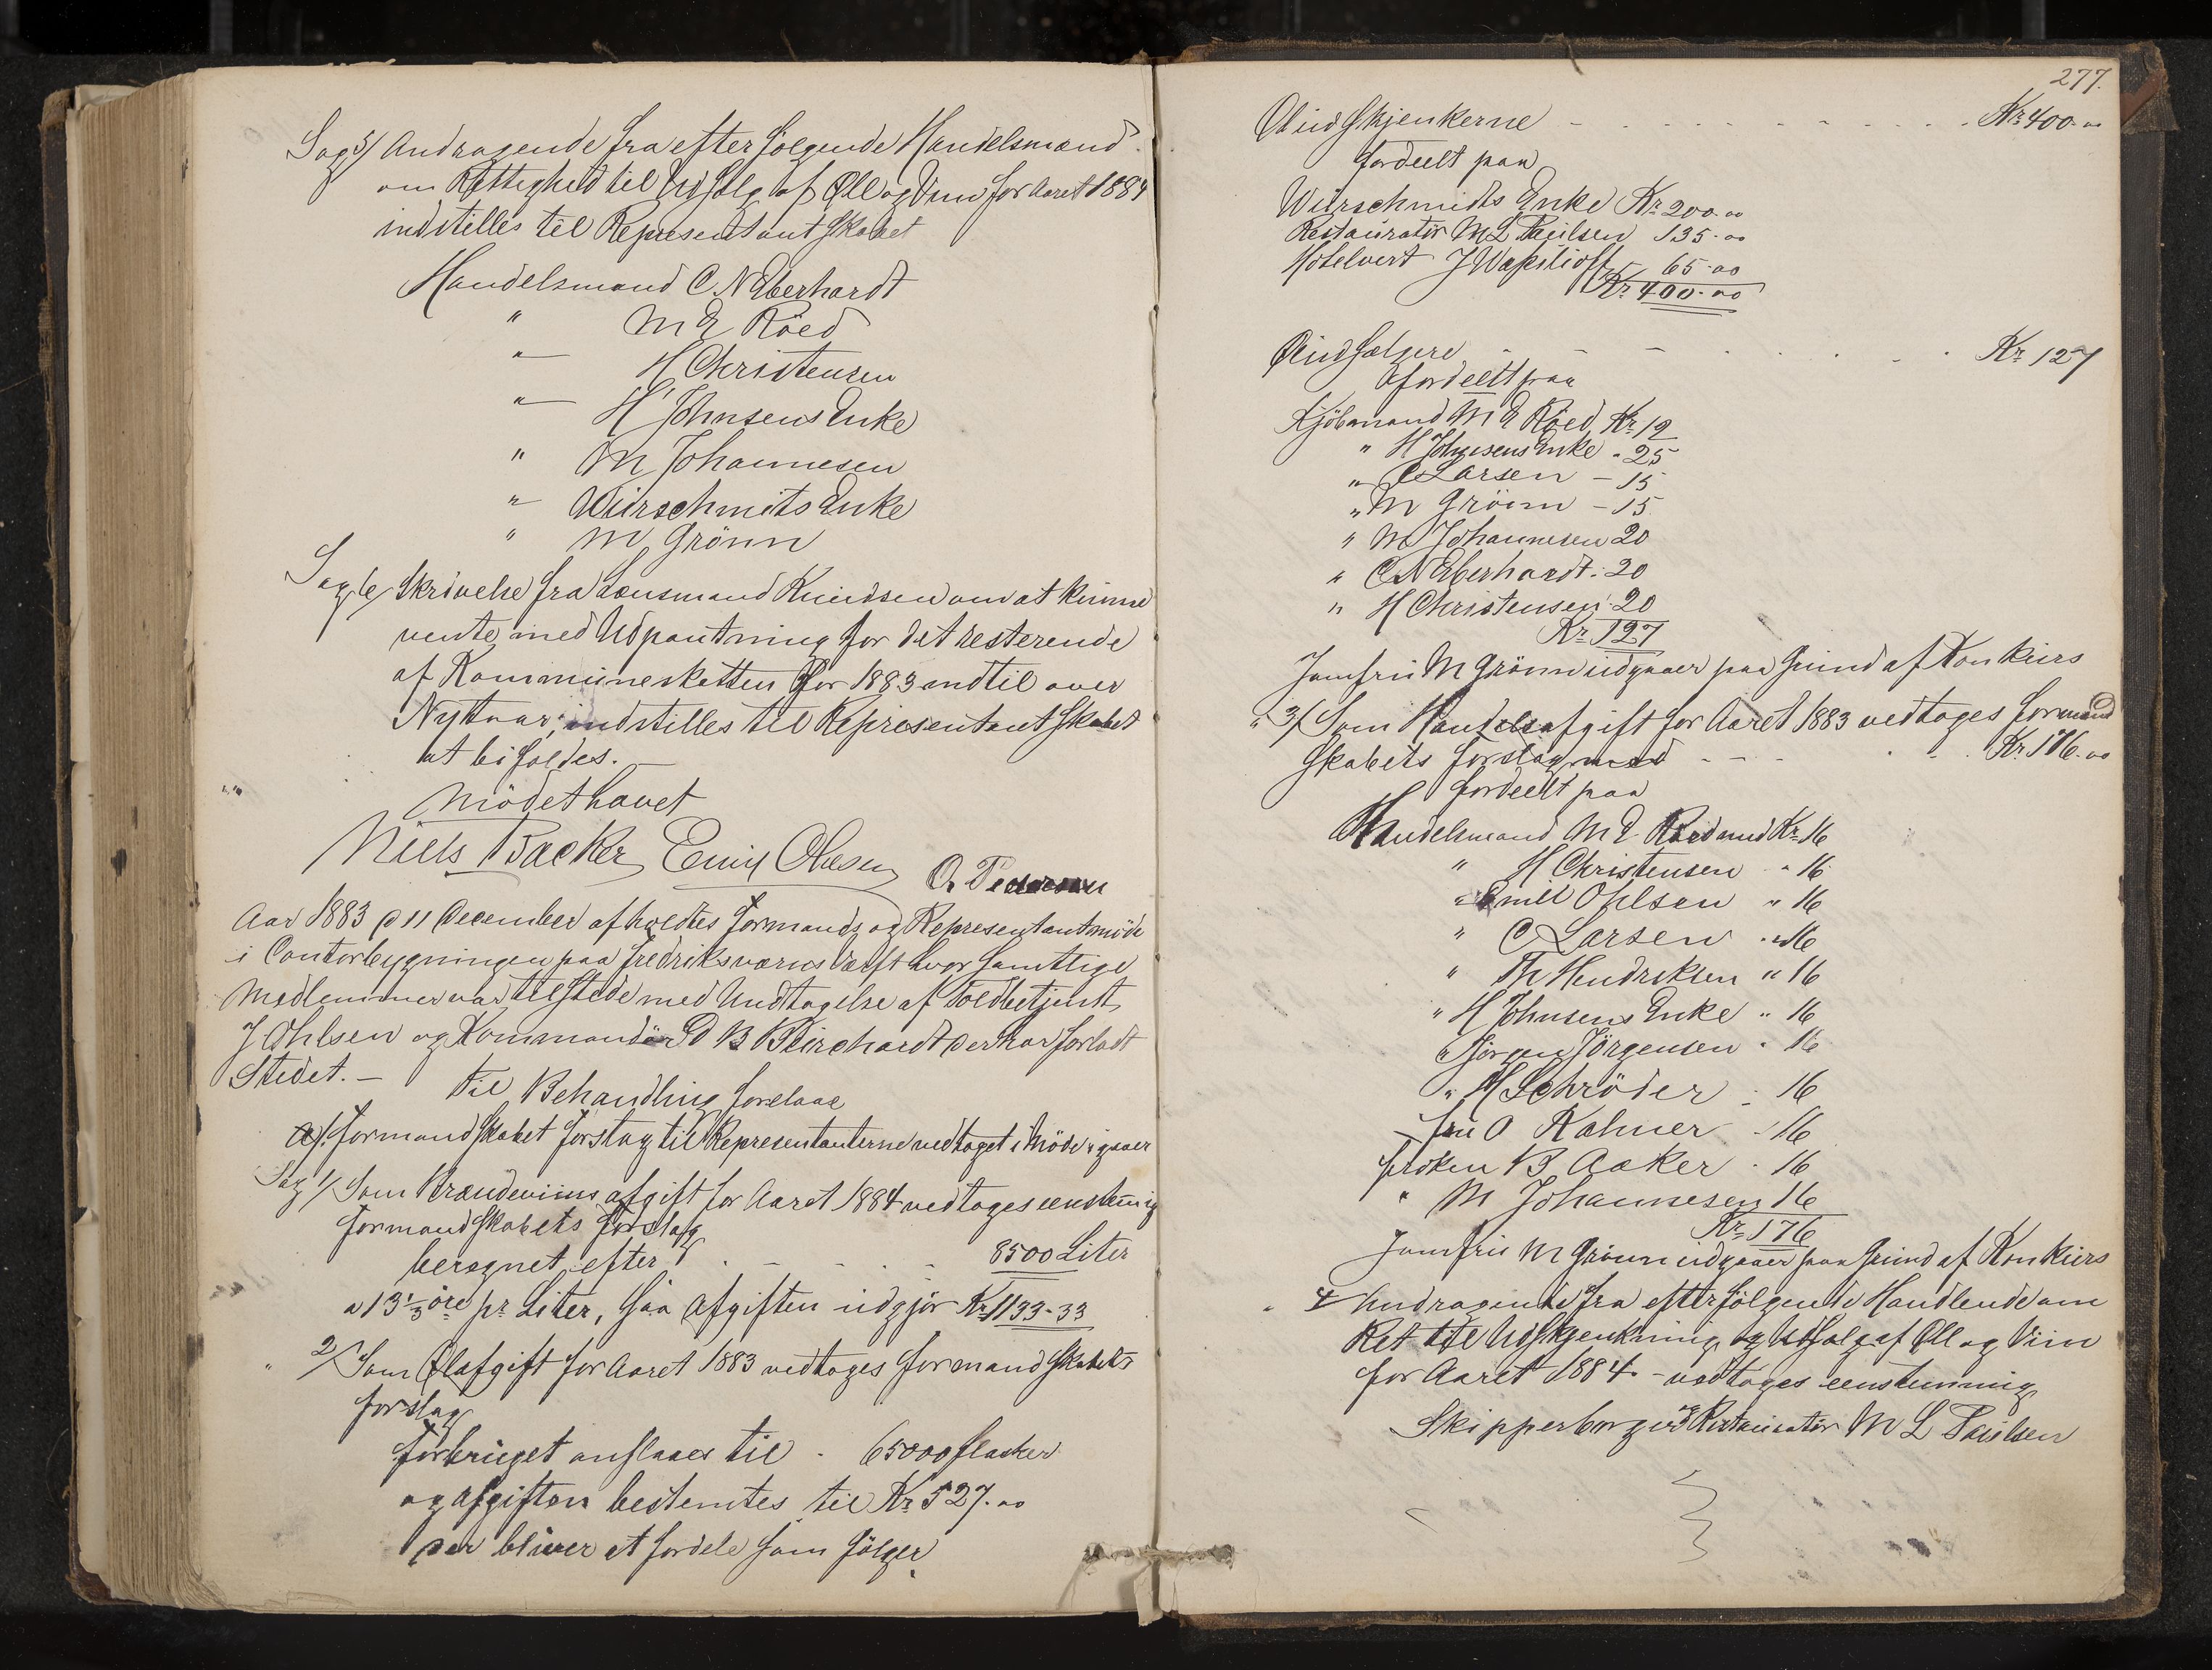 Sag 5/ Andragende fra efterfølgende Handelsmænd
om Rettighed til Udsalg af Øll og Viin for Aaret 1884
indstilles til Representantskabet
Handelsmand C. N Eberhardt
" M E Röed
" H Christensen
" H Johnsens Enke
" M Johannesen
" Würschmits Enke
" M Grönn
Sag 6/ Skrivelse fra Lensmand Knudsen om at kunne
vente med Udpantning for det resterende
af Kommuneskatten for 1883 indtil over
Nyttaar, indstilles til Representantskabet
at bifaldes. —
Mödet hævet
Niels Backer Emil Ohlsen O. Pedersen
Aar 1883 d 11 December afholdtes Formands og Representantmöde
i Contorbygningen paa Fredriksværns Værft hvor samtlige
Medlemmer var tilstede med Undtagelse af Toldbetjent
J Ohlsen og Kommandör D B Burchardt der har forladt
Stedet. — Til Behandling forelaae
a/. Formandskabet Forslag til Representanterne vedtaget i Möde igaaer
Sag 1/ Som Brændeviins afgift for Aaret 1884 vedtoges eenstemig
Formandskabets Forslag
beregnet efter . - - . - 8500 Liter
a 13 1/3 öre pr Liter, saa Afgiften udgjör Kr 1133-33
" 2/ Som Ølafgift for Aaret 1883 vedtoges Formandskabets
Forslag
Forbruget anslaaes til - 65000 flasker
og Afgiften bestemtes til Kr 527.00
der bliver at fordele som fölger
277.
Øludskjenkerne - - - - - - Kr 400.00
fordeelt paa
Würschmidts Enke Kr 200.00
Restauratör M L Paulsen 135.00
Hotelvert J Wasilioff 65-00
Kr 400.00
Øludsælgere - - - - Kr 127
fordeelt paa
Kjöbmand M E Röed Kr 12
" H Johnsens Enke " 25
" C Larsen - 15
" M Grönn - 15
" M Johannesen 20
" C N Eberhardt : 20
" H Christensen : 20
Kr 127
Jomfru M Grönn udgaaer paa Grund af Konkurs
" 3/ Som Handelsafgift for Aaret 1883 vedtoges Formand
skabets Forslag med - - - Kr 176.00
fordeelt paa
Handelsmand M E Röed med Kr 16
" H Christensen " 16
" Emil Ohlsen " 16
" C Larsen " 16
" Th Hendriksen " 16
" H Johnsens Enke " 16
" Jörgen Jörgensen " 16
" H Schröder - 16
Fru O Kahner - 16
Fröken B Aaker - 16
" M Johannesen 16
Kr 176
Jomfru M Grönn udgaaer paa Grund af Konkurs
" 4 Andragende fra efterfölgende Handlende om
Ret til Udskjenkning og Udsalg af Øll og Viin
for Aaret 1884 - vedtoges eenstemmig
Skipperborger og Restauratör M L Paulsen